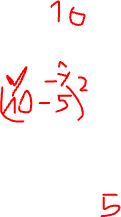 10
(10 - 5)²
5